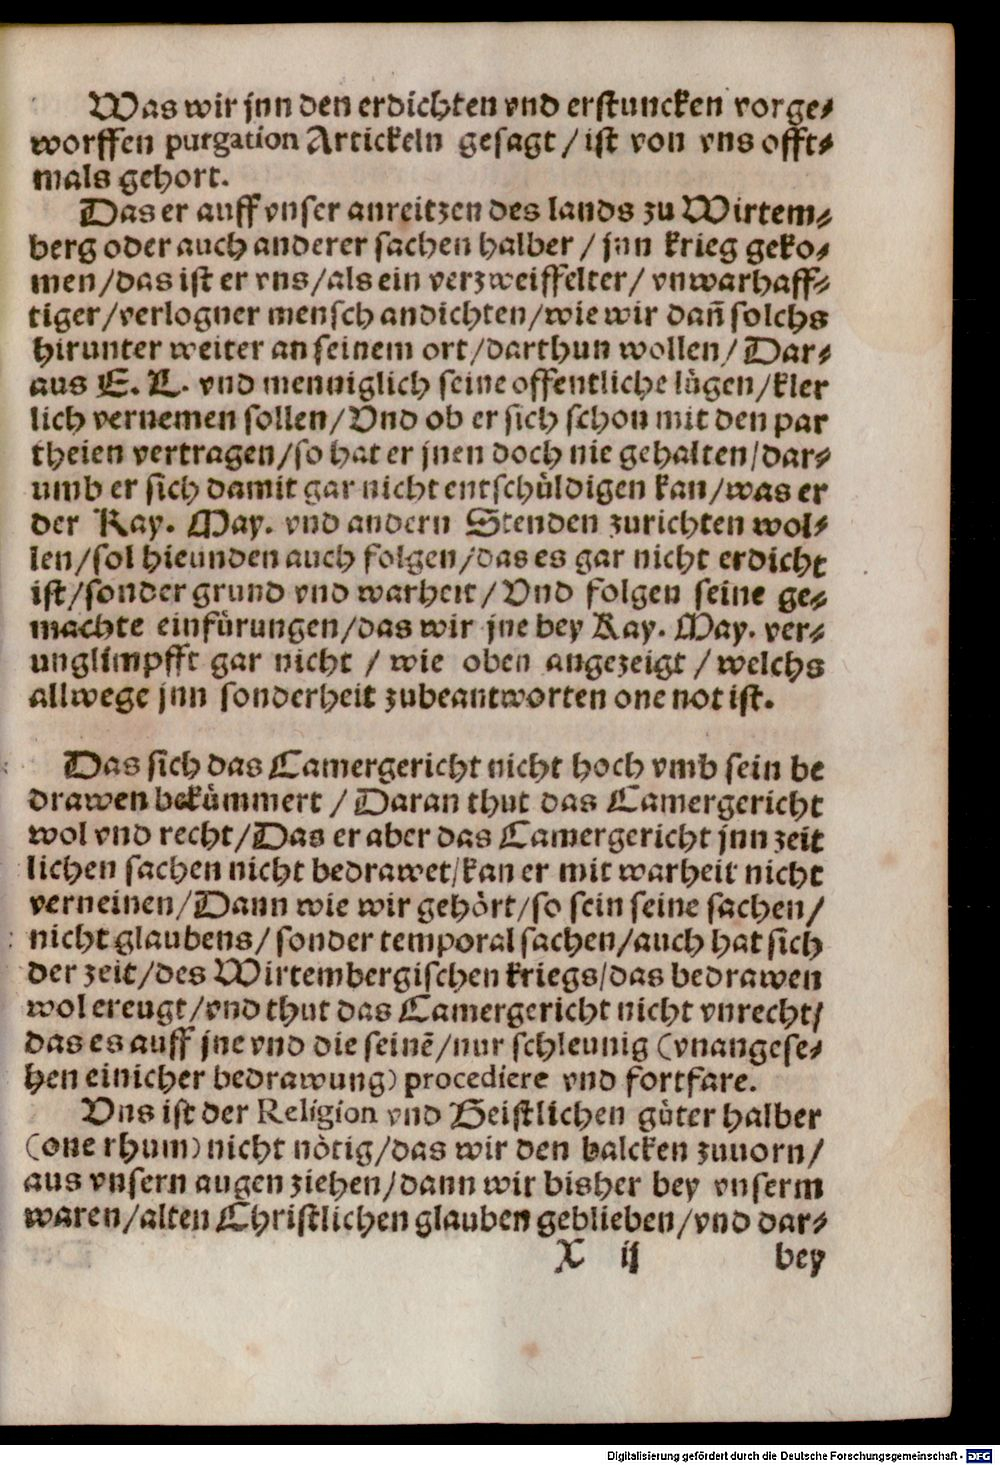 Was wir jnn den erdichten vnd erstuncken vorge⸗
worffen purgation Artickeln gesagt / ist von vns offt⸗
mals gehort.
Das er auff vnser anreitzen des lands zu Wirtem⸗
berg oder auch anderer sachen halber / jnn krieg geko⸗
men/das ist er vns/als ein verzweiffelter/ vnwarhaff⸗
tiger/verlogner mensch andichten/wie wir dañ solchs
hirunter weiter an seinem ort/darthun wollen/ Dar⸗
aus E. L. vnd menniglich seine offentliche lügen/kler
lich vernemen sollen/Vnd ob er sich schon mit den par
theien vertragen/so hat er jnen doch nie gehalten/dar⸗
umb er sich damit gar nicht entschüldigen kan/was er
der Kay. May. vnd andern Stenden zurichten wol⸗
len/sol hieunden auch folgen/das es gar nicht erdicht
ist/sonder grund vnd warheit/Vnd folgen seine ge⸗
machte einfürungen/das wir jne bey Kay. May. ver⸗
unglimpfft gar nicht / wie oben angezeigt / welchs
allwege jnn sonderheit zubeantworten one not ist.
Das sich das Camergericht nicht hoch vmb sein be
drawen bekümmert / Daran thut das Camergericht
wol vnd recht/Das er aber das Camergericht jnn zeit
lichen sachen nicht bedrawet/kan er mit warheit nicht
verneinen/Dann wie wir gehört/so sein seine sachen/
nicht glaubens/ sonder temporal sachen/auch hat sich
der zeit/des Wirtembergischen kriegs/das bedrawen
wol ereugt/vnd thut das Camergericht nicht vnrecht/
das es auff jne vnd die seinē/nur schleunig (vnangese⸗
hen einicher bedrawung) procediere vnd fortfare.
Vns ist der Religion vnd Geistlichen güter halber
(one rhum) nicht nötig/das wir den balcken zuuorn/
aus vnsern augen ziehen/dann wir bisher bey vnserm
waren/alten Christlichen glauben geblieben/vnd dar⸗
X ij bey
Digitalisierung gefördert durch die Deutsche Forschungsgemeinschaft - DFG